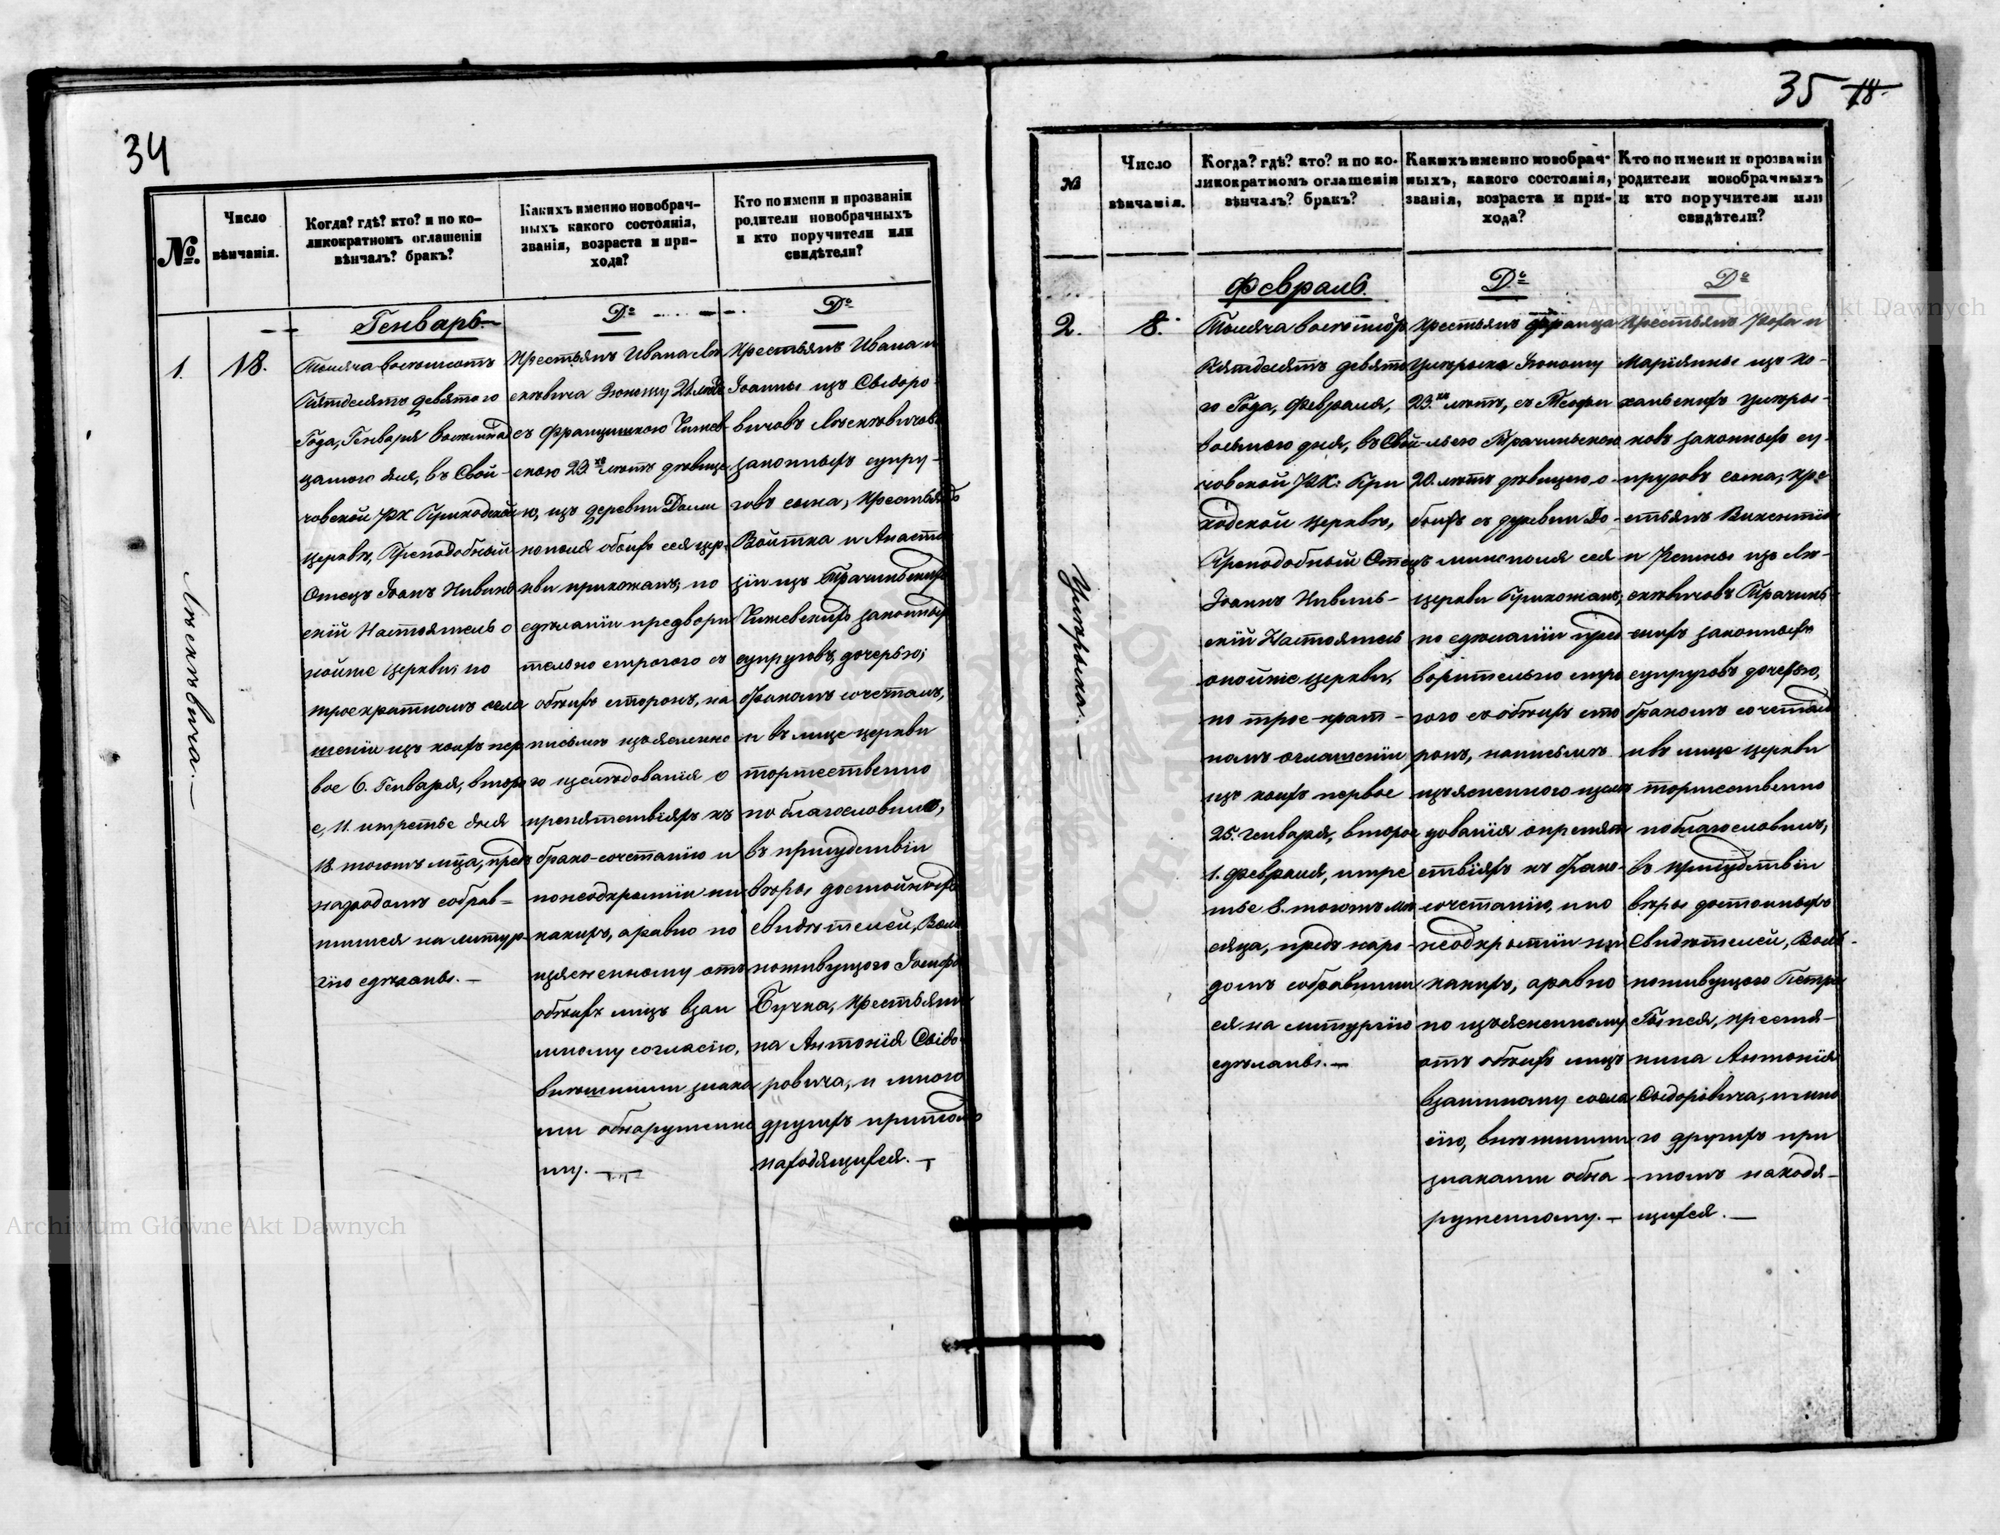 34
№.
Число
вѣнчанія.
Когда? гдѣ? кто? и по ко-
ликократномъ оглашеніи
вѣнчалъ? бракъ?
Какихъ именно новобрач-
ныхъ какого состоянія,
званія, возраста и при-
хода?
Кто по имени и прозваніи
родители новобрачныхъ
и кто поручители или
свидѣтели?
Генварь.
Dо
Dо
1.
18.
Тысяча восемьсотъ
Пятдесятъ девятого
Года, Генваря восемнад
цатого дня, въ Свой-
човской РК Приходской
церкви, Преподобный
Отецъ Іоанъ
скій Настоятель о
нойже церкви; по
троекратномъ огла
шеніи изъ коихъ пер
вое 6. Генваря, второ
е, 11. и третье дня
18. тогожъ мца, предъ
народомъ собрав=
шимся на литур
гію сдѣланы.
Крестьянъ Ивана
Юношу 21 лѣтъ
съ Францишкою
скою 23хъ лѣтъ дѣвице
ю, изъ деревни Доми
нополя обоихъ сея цер
кви прихожанъ, по
сдѣланіи предвори
тельно строгого съ
обоихъ сторонъ, на
письмѣ изъясненно
го изслѣдованія о
препятствіяхъ къ
брако-сочетанію и
по неоткрытіи ни
какихъ, а равно по
изъясненному отъ
обоихъ лицъ взаи
мному согласію,
внѣшними знака
ми обнаруженно
му.
Крестьянъ Ивана и
Іоанны изъ Сыдоро-
вичовъ
законныхъ супру-
говъ сына, Крестьянъ
Войтка и Анаста
зіи изъ
законныхъ
супруговъ дочерью;
бракомъ сочеталъ,
и въ лице церкви
торжественно
поблагословилъ,
въ присудствіи
вѣры достойныхъ
свидѣтелей, Воль
ноживущого Іосифа
Бучка, крестьяни
на Антонія Сыдо-
ровича, и много
другихъ притомъ
находящихся.
35 18.
№
Число
вѣнчанія.
Когда? гдѣ? кто? и по ко-
ликократномъ оглашеніи
вѣнчалъ? бракъ?
Какихъ именно новобрач-
ныхъ, какого состоянія,
званія, возраста и при-
хода?
Кто по имени и прозваніи
родители новобрачныхъ
и кто поручители или
свидѣтели?
Февраль.
Dо
Dо
2.
8.
Тысяча восемьсотъ
Пятдесятъ девято
го Года, Февраля,
восьмого дня, въ Свой-
човской РК: При
ходской церкви,
Преподобный Отецъ
Іоаннъ
скій Настоятель
онойже церкви,
по трое-крат-
номъ оглашеніи
изъ коихъ первое
25. Генваря, второе
1. Февраля, и тре
тье 8. тогожъ мѣ
сяца, предъ наро-
домъ собравшим
ся на литургію
сдѣланы.
Крестьянъ Франца
Юношу
23.хъ лѣтъ, съ Теофи
лью
20. лѣтъ дѣвицею, о-
боихъ съ деревни До-
минополя сея
церкви Прихожанъ,
по сдѣланіи пред
ворительно стро
гого съ обоихъ сто
ронъ, на письмѣ
изъясненного изслѣ
дованія о препят
ствіяхъ къ брако-
сочетанію, и по
неоткрытіи ни
какихъ, а равно
по изъясненному
отъ обоихъ лицъ
взаимному согла
сію, внѣшними
знаками обна-
руженному.
Крестьянъ и
Маріянны изъ Ко-
ханскихъ
ковъ законныхъ су-
пруговъ сына, кре
стьянъ Викентія
и изъ
законныхъ
супруговъ дочерью,
бракомъ сочеталъ
и въ лице церкви
торжественно
поблагословилъ,
въ присудствіи
вѣры достойныхъ
Свидѣтелей, Воль-
ноживущого Петра
крестья-
нина Антонія
Сыдоровича, и мно
го другихъ при
томъ находя-
щихся.
Archiwum Główne Akt Dawnych
Archiwum Główne Akt Dawnych